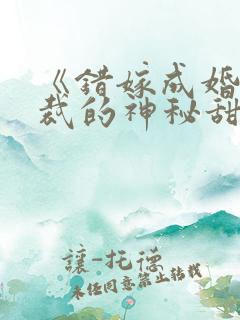 《错嫁成婚
裁的神秘甜
讓-托德
未经同意禁止转载